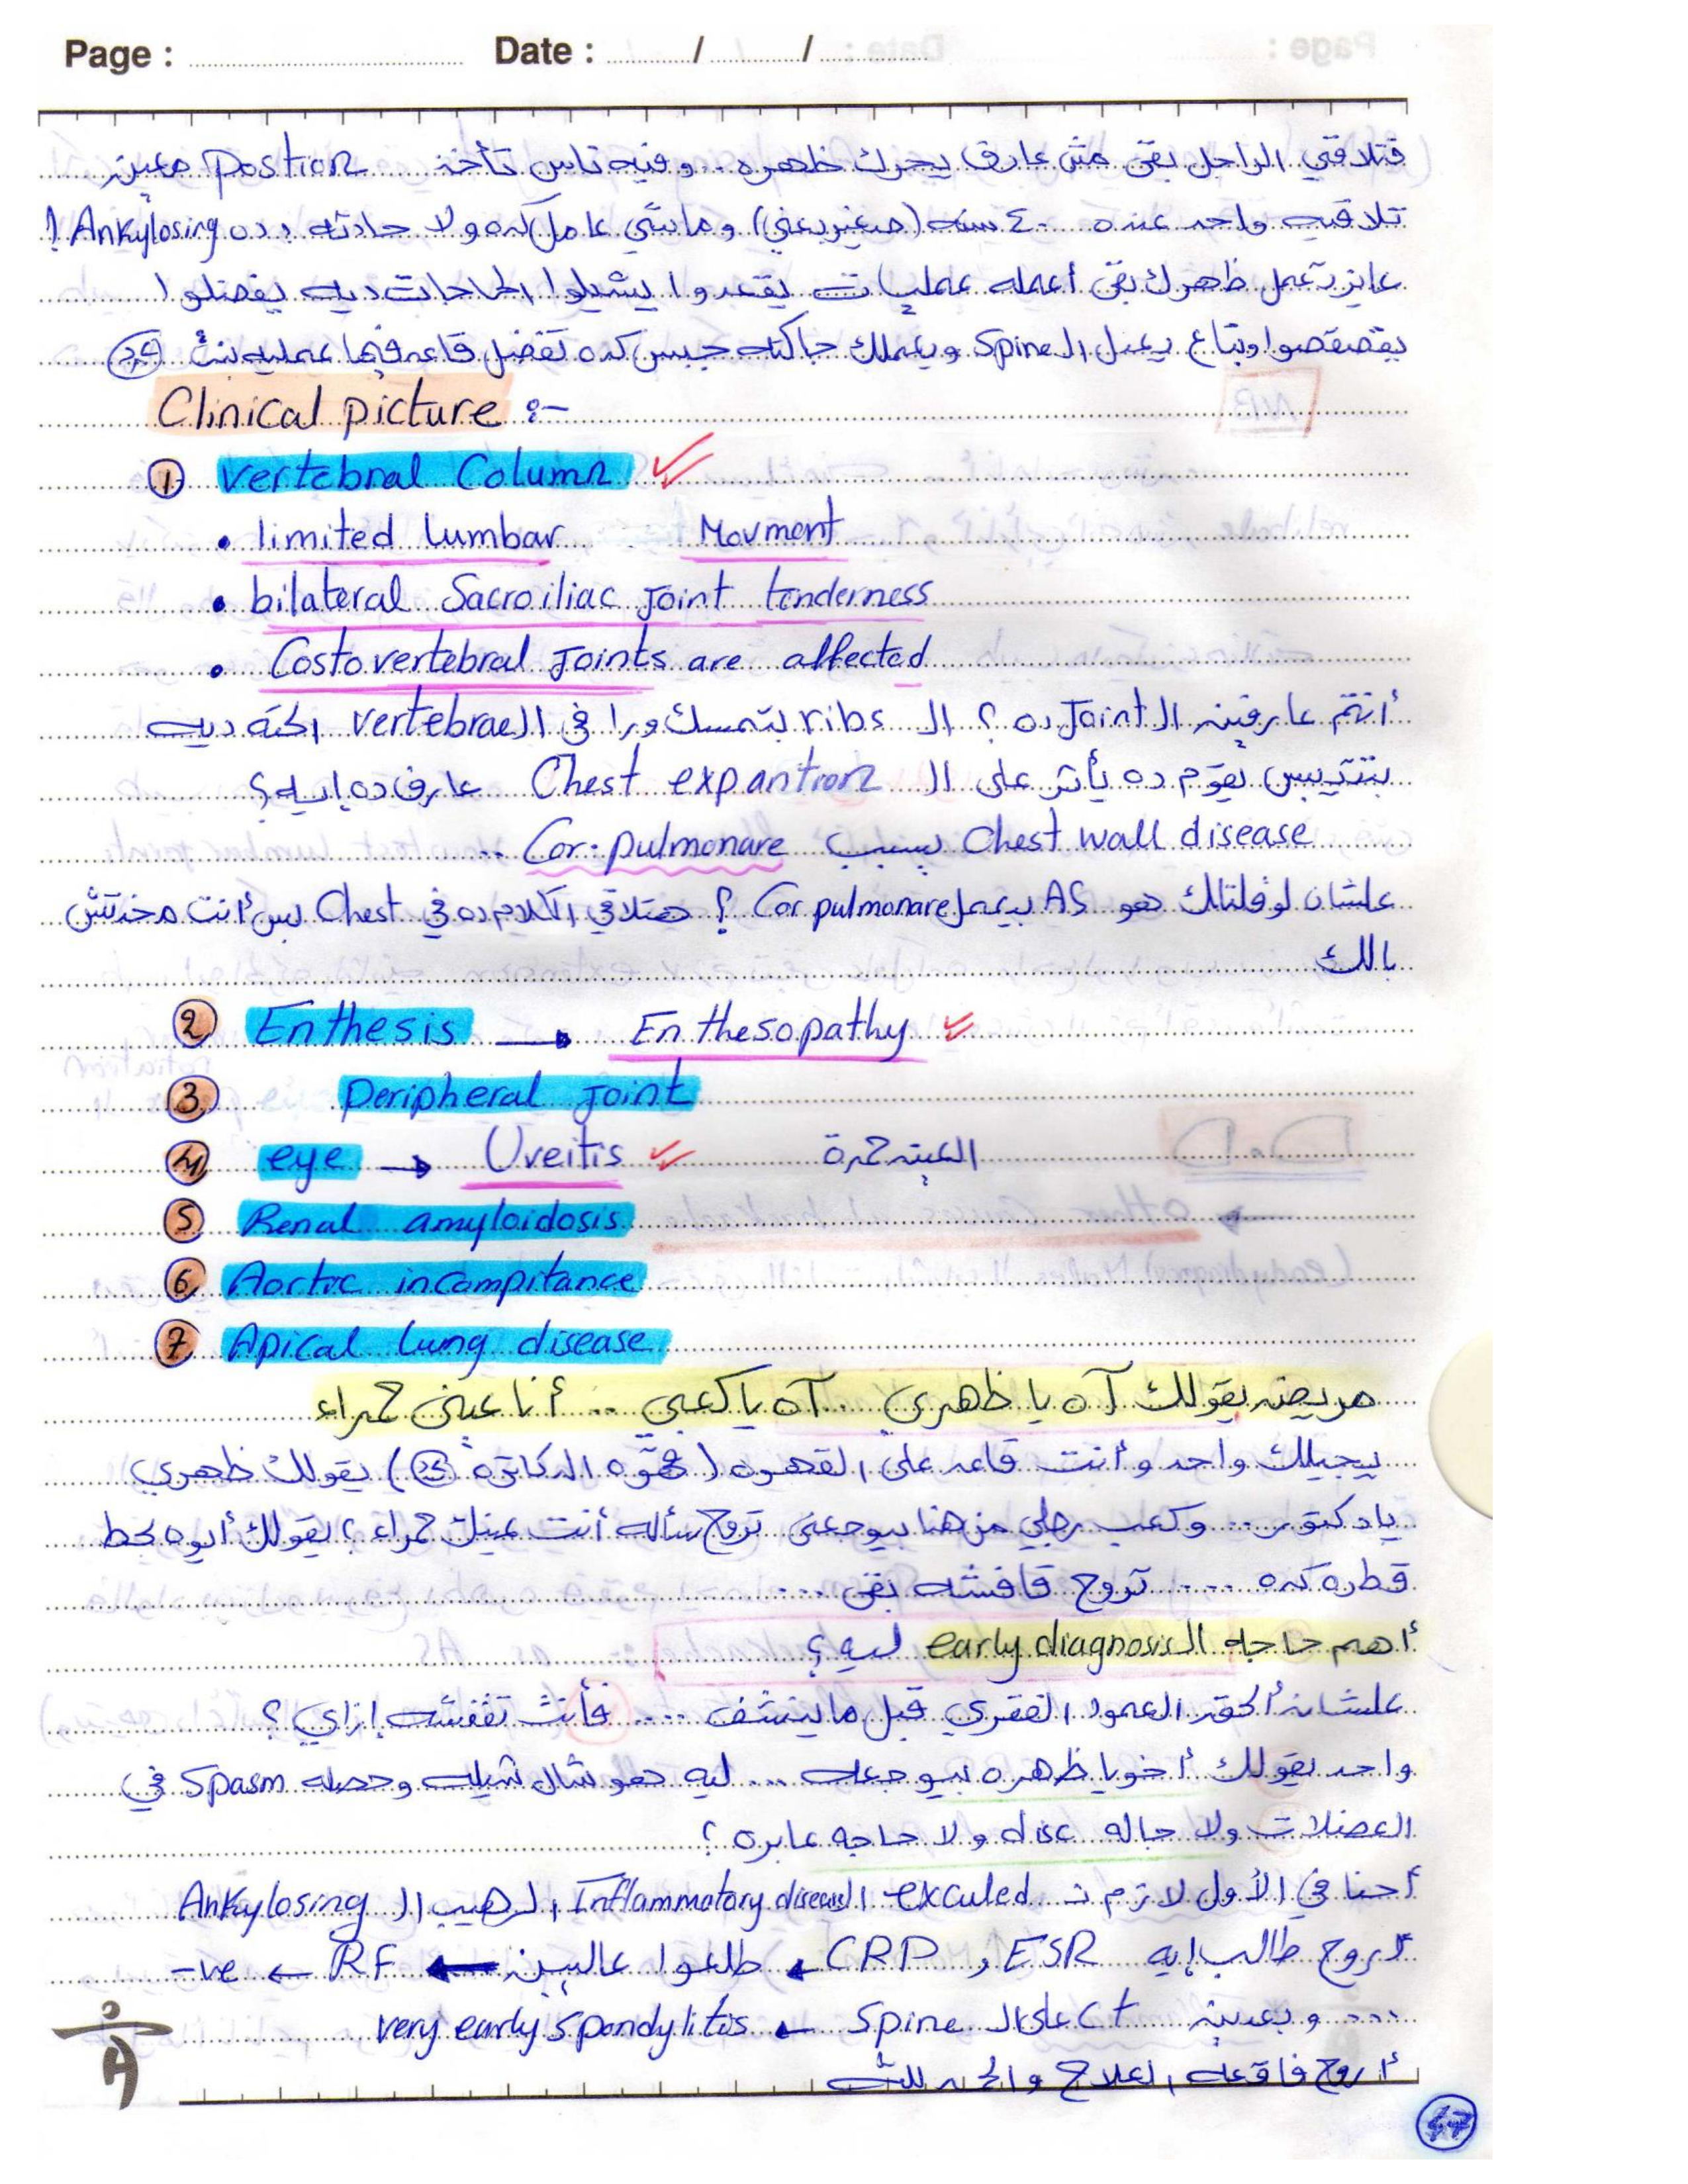 Page : Date : / /
فتلاقي الراجل بقى مش عارف يحرك ظهره .. وفيه ناس تأخذ Postion معين
تلاقيه واحد عنده ٤٠ سنه (صغير يعني) وماشي عامل كده ولا حادثه ده Ankylosing !
عايز تعمل ظهرك بقى أعمله عمليات يقعدوا يشيلوا الحاجات ديه يفضلوا
يقصقصوا وبتاع يعدل الـ Spine ويعملك جاكته جبس كده تفضل قاعد فيها عمليه
Clinical picture :-
① Vertebral Column
• limited lumbar Movment
• bilateral Sacroiliac Joint tenderness
• Costovertebral Joints are affected
أنتم عارفين الـ Joint ده ؟ الـ ribs بتمسك ورا في الـ vertebrae الحته ديه
بتتيبس يقوم ده يأثر على الـ Chest expantion عارف ده إيه ؟
Chest wall disease بسبب Cor. pulmonare ..
علشان لو قلتلك هو AS بيعمل Cor pulmonare ؟ هتلاقي الكلام ده في Chest بس أنت مخدتش
بالك
② Enthesis → Enthesopathy
③ Peripheral Joint
④ eye → Uveitis العين حمرة
⑤ Renal amyloidosis
⑥ Aortic incompitance
⑦ Apical lung disease
مريض يقولك آه يا ظهري .. آه يا كعبي .. أنا عيني حمراء
ييجيلك واحد وأنت قاعد على القهوه (قهوه الدكاتره) يقولك ظهري
يا دكتور ... وكعب رجلي من هنا بيوجعني تروح سأله أنت عينك حمراء ؟ يقولك أيوه بحط
قطره كده .... تروح قافشه بقى ....
أهم حاجه الـ early diagnosis ليه ؟
علشان ألحق العمود الفقري قبل ما ينشف .... فأنت تقفشه إزاي ؟
واحد يقولك أخويا ظهره بيوجعه ... ليه هو شال شيله وحصله Spasm في
العضلات ولا جاله disc ولا حاجه عابره ؟
أحنا في الأول لازم ت exculed الـ Inflammatory disease الرهيب الـ Ankylosing
أروح طالب إيه ESR و CRP ← طلعوا عاليين ← RF ← -ve
.... وبعدين Ct على الـ Spine ← very early spondylitis
أروح فاقعه العلاج والحمد لله
٤٧